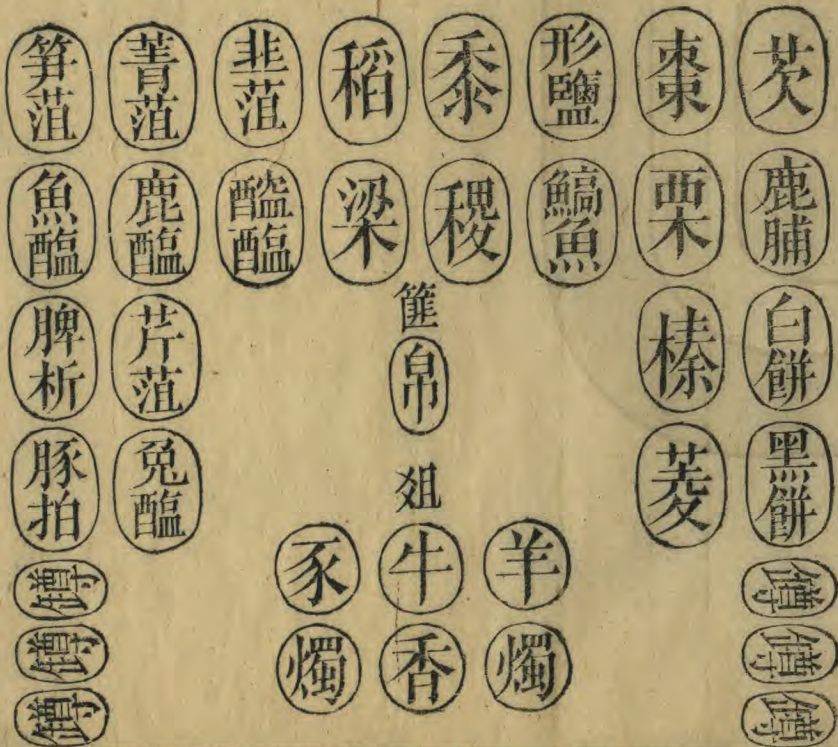 芡
鹿脯
白餅
黑餅
罇
罇
罇
棗
栗
榛
菱
形鹽
鰝魚
黍
稷
稻
梁
篚
帛
俎
羊
牛
豕
燭
香
燭
韭菹
醓醢
菁菹
鹿醢
芹菹
兔醢
笋菹
魚醢
脾析
豚拍
罇
罇
罇